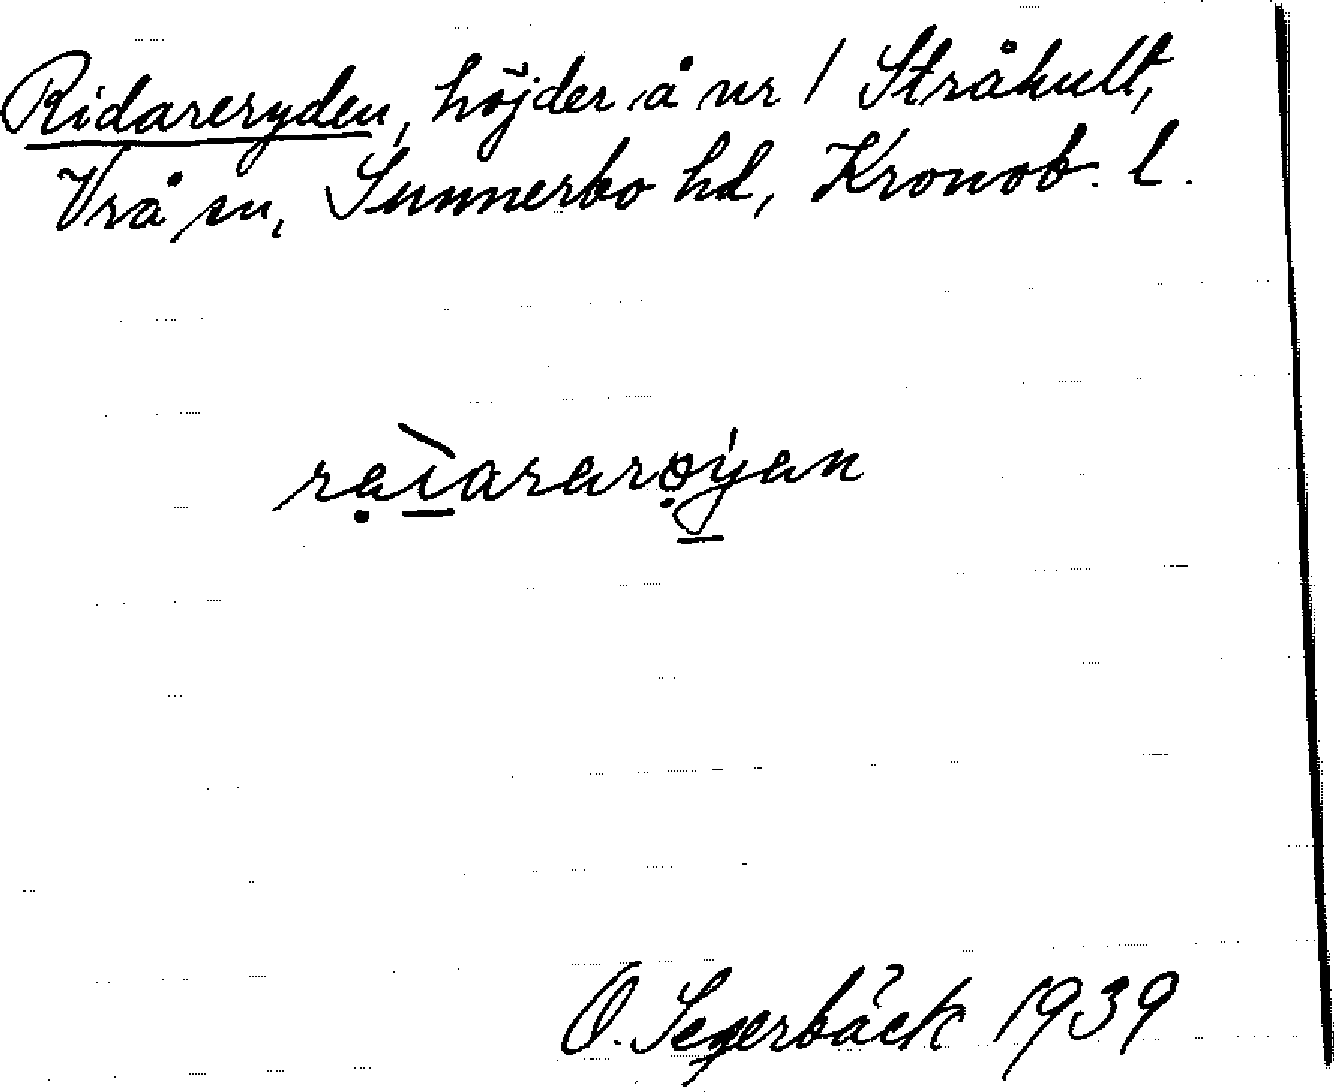 Ridareryden, höjder å nr 1 Stråkult,
Vrå sn, Sunnerbo hd, Kronob. l.
rạì̱ararọý̱an
O. Segerbäck 1939